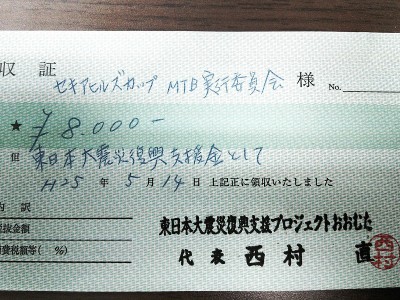 収証
セキアヒルズカップ MTB実行委員会 様 No.
★ ¥8.000-
但 東日本大震災復興支援金として
H25年5月14日 上記正に領収いたしました
内訳
税抜金額
消費税額等(%)
東日本大震災復興支援プロジェクトおおむた
代表 西村 直
西村